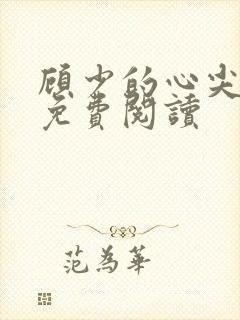 顾少的心尖
免費閱讀
范為華